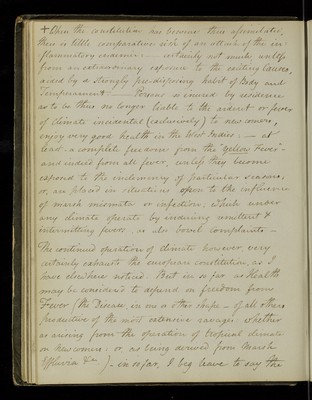 + When the constitution has become thus assimilated,
there is little comparative risk of an attack of the in-
flammatory endemic; — certainly not much, unless
from an extraordinary exposure to the exciting causes,
aided by a strongly pre-disposing habit of Body and
temperament. — Persons so inured by residence
as to be thus no longer liable to the ardent or fever
of climate incidental (exclusively) to new comers,
enjoy very good health in the West Indies; — at
least a complete freedom from the "Yellow Fever"
and indeed from all fever, unless they become
exposed to the inclemency of particular seasons,
or, are placed in situations open to the influence
of marsh miasmata or infection, which under
any climate operate by inducing remittent &
intermitting fevers, & also bowel complaints. —
The continued operation of climate however very
certainly exhausts the european constitution, as I
have elsewhere noticed. But in so far as Health
may be considered to depend on freedom from
Fever (the Disease, in one or other shape, of all others
productive of the most extensive ravages, whether
as arising from the operation of tropical climate
on New comers, or as being derived from Marsh
Effluvia &c.) — in so far, I beg leave to say the